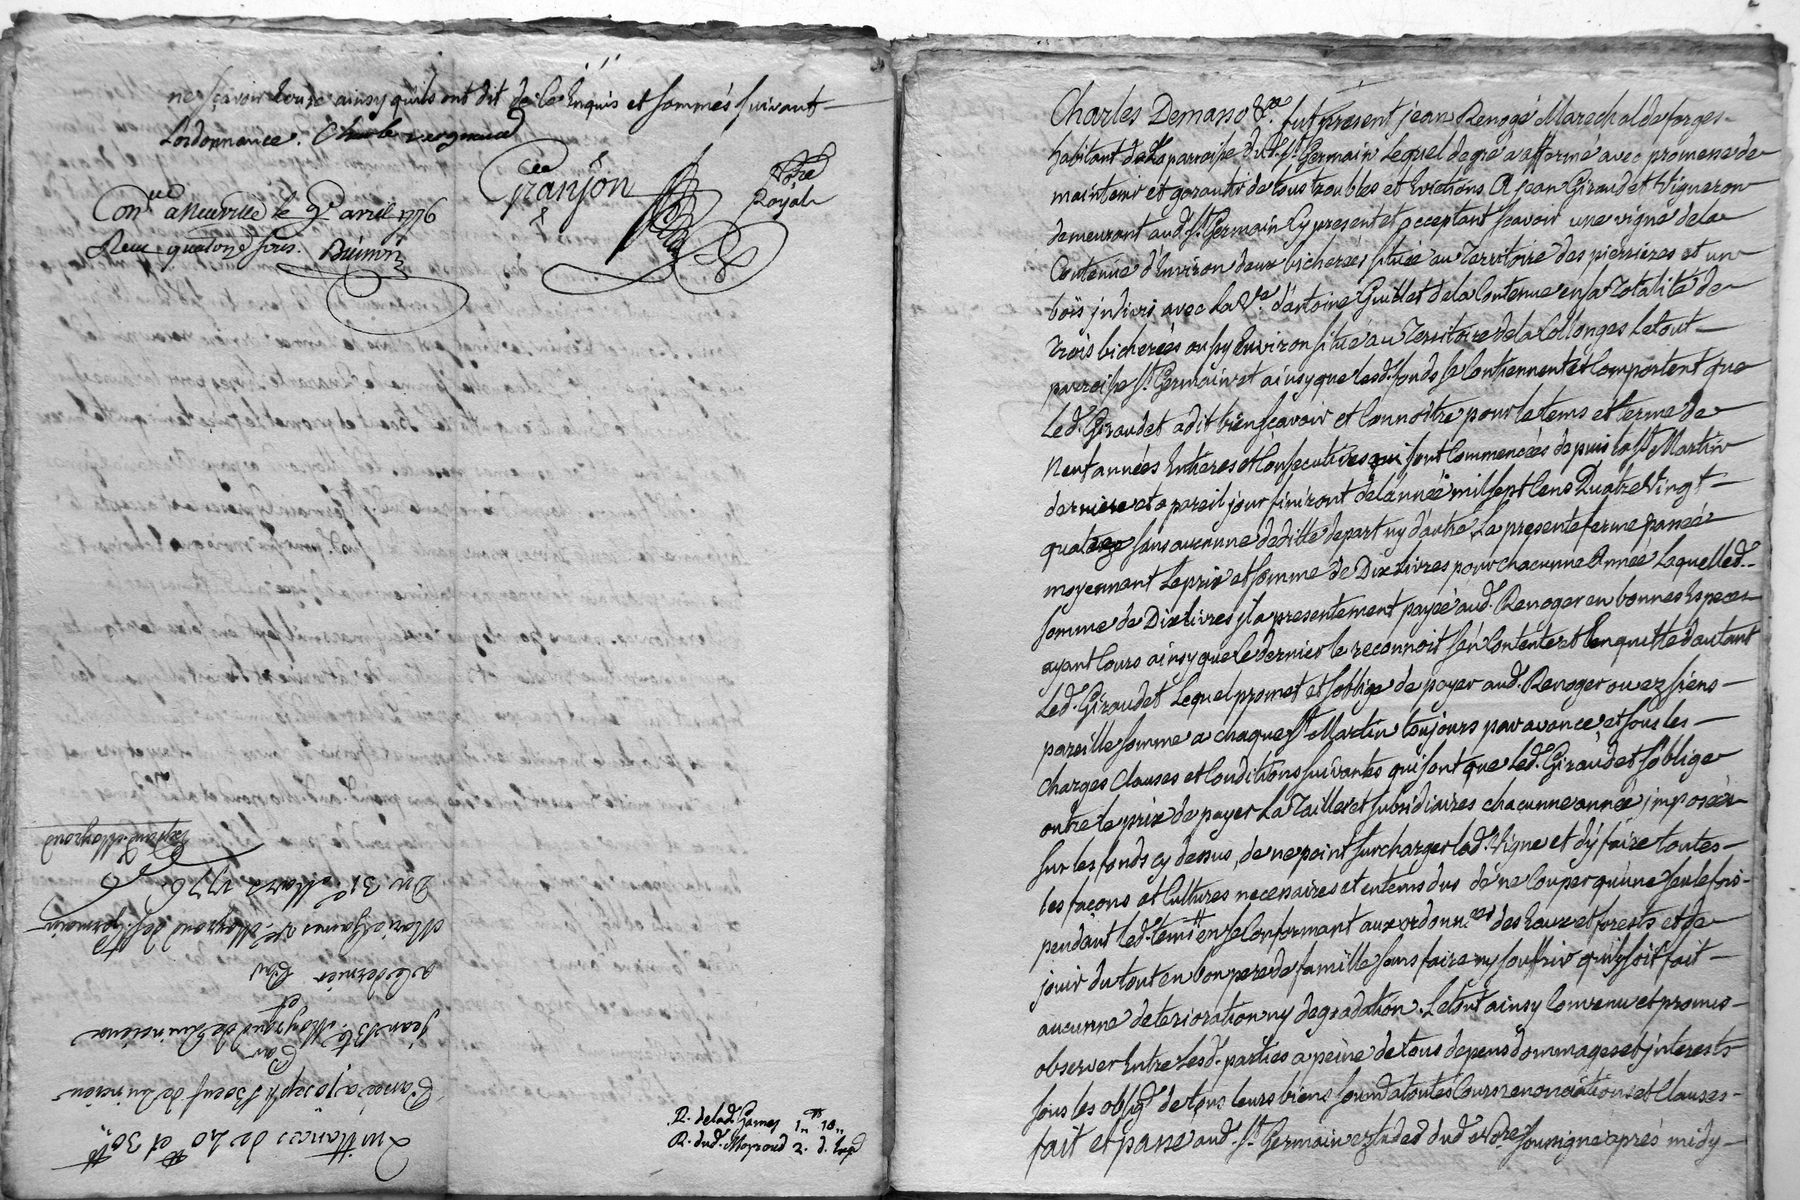 ne sçavoir écrire ainsy qu'ils ont dit de ce Enquis et sommés suivant
Lordonnance. Charle vergnaud
Granjon nore Royal
Con.lle a Neuville le 9e avril 1776
Reçu quatorze sous.
R. de lad. Games 1" 10"
R. dud. Meyraud 2. d. Exp
Quittances de 40 tt et 30 tt
Passée a joseph Boeuf de Quincieu
Par
jean Bte. Meyraud de Quincieux
et
a Ce dernier Par
Marie Games ve. Meyraud de St. germain
Du 31e Mars 1776
Exp. pour led. Meyraud
Charles Demano &a. fut present jean Renogé Marechal de forges
habitant de La parroisse dud. St. Germain Lequel de gré a affermé avec promesse de
maintenir et garantir de tous troubles et Evictions A jean Giraudet Vigneron
demeurant aud. St. Germain Cy present et acceptant sçavoir une vigne de la
Contenue d'Environ deux bicherées située au Territoire des pierrieres et un
bois jndivis avec La Ve. d'antoine Guillet de la Contenue en sa Totalité de
Trois bicherées ou sy Environ situé au Territoire de la Collonges Le tout
parroisse St. Germain et ainsy que lesd. fonds se Contiennent et Comportent que
Led. Giraudet a dit bien sçavoir et Connoître pour le tems et terme de
Neuf années Entieres et Consecutives qui sont Commencées depuis la St. Martin
derniere et a pareil jour finiront de lannée mil sept Cens Quatre Vingt
quatre sans aucunne deditte de part ny d'autre, La presente ferme passée
moyennant Le prix et somme de Dix Livres pour chacunne Année Laquelle d.
somme de Dix Livres jl a presentement payée aud. Renoger en bonnes Especes
ayant Cours ainsy que le dernier le reconnoit s'en Contente et l'en quitte d'autant
Led. Giraudet Lequel promet et s'oblige de payer aud. Renoger ou ez siens
pareille somme a chaque St. Martin toujours par avance, et sous les
Charges Clauses et Conditions suivantes qui sont que Led. Giraudet s'oblige
outre le prix de payer La Taille et subsidiaires chacunne année jmposées
sur les fonds cy dessus, de ne point surcharger lad. Vigne et d'y faire toutes
les façons et Cultures necessaires et en tems dus de ne Couper qu'une seule fois
pendant led. tems en se Conformant aux ordonn.ces des Eaux et forests et de
jouir du tout en bon pere de famille sans faire ny souffrir qu'il y soit fait
aucunne deterioration ny degradation. Le tout ainsy Convenu et promis
observer Entre Lesd. parties a peine de tous depens dommages et jnterests
sous les oblig. de tous leurs biens soumis a toutes Cours renonciations et Clauses
fait et passé aud. St. Germain etude dud. Nore. soussigné aprés midy